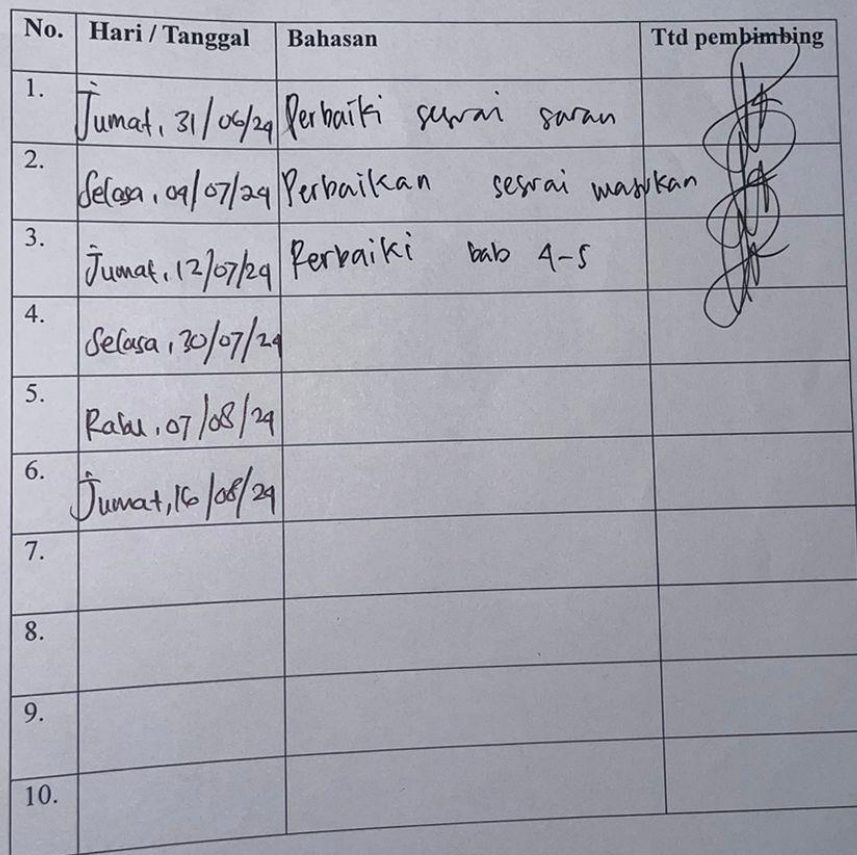 No. Hari / Tanggal Bahasan Ttd pembimbing
1. Jumat, 31/06/24 Perbaiki sesuai saran
2. Selasa, 09/07/24 Perbaikan sesuai masukan
3. Jumat, 12/07/24 Perbaiki bab 4-5
4. Selasa, 30/07/24
5. Rabu, 07/08/24
6. Jumat, 16/08/24
7.
8.
9.
10.